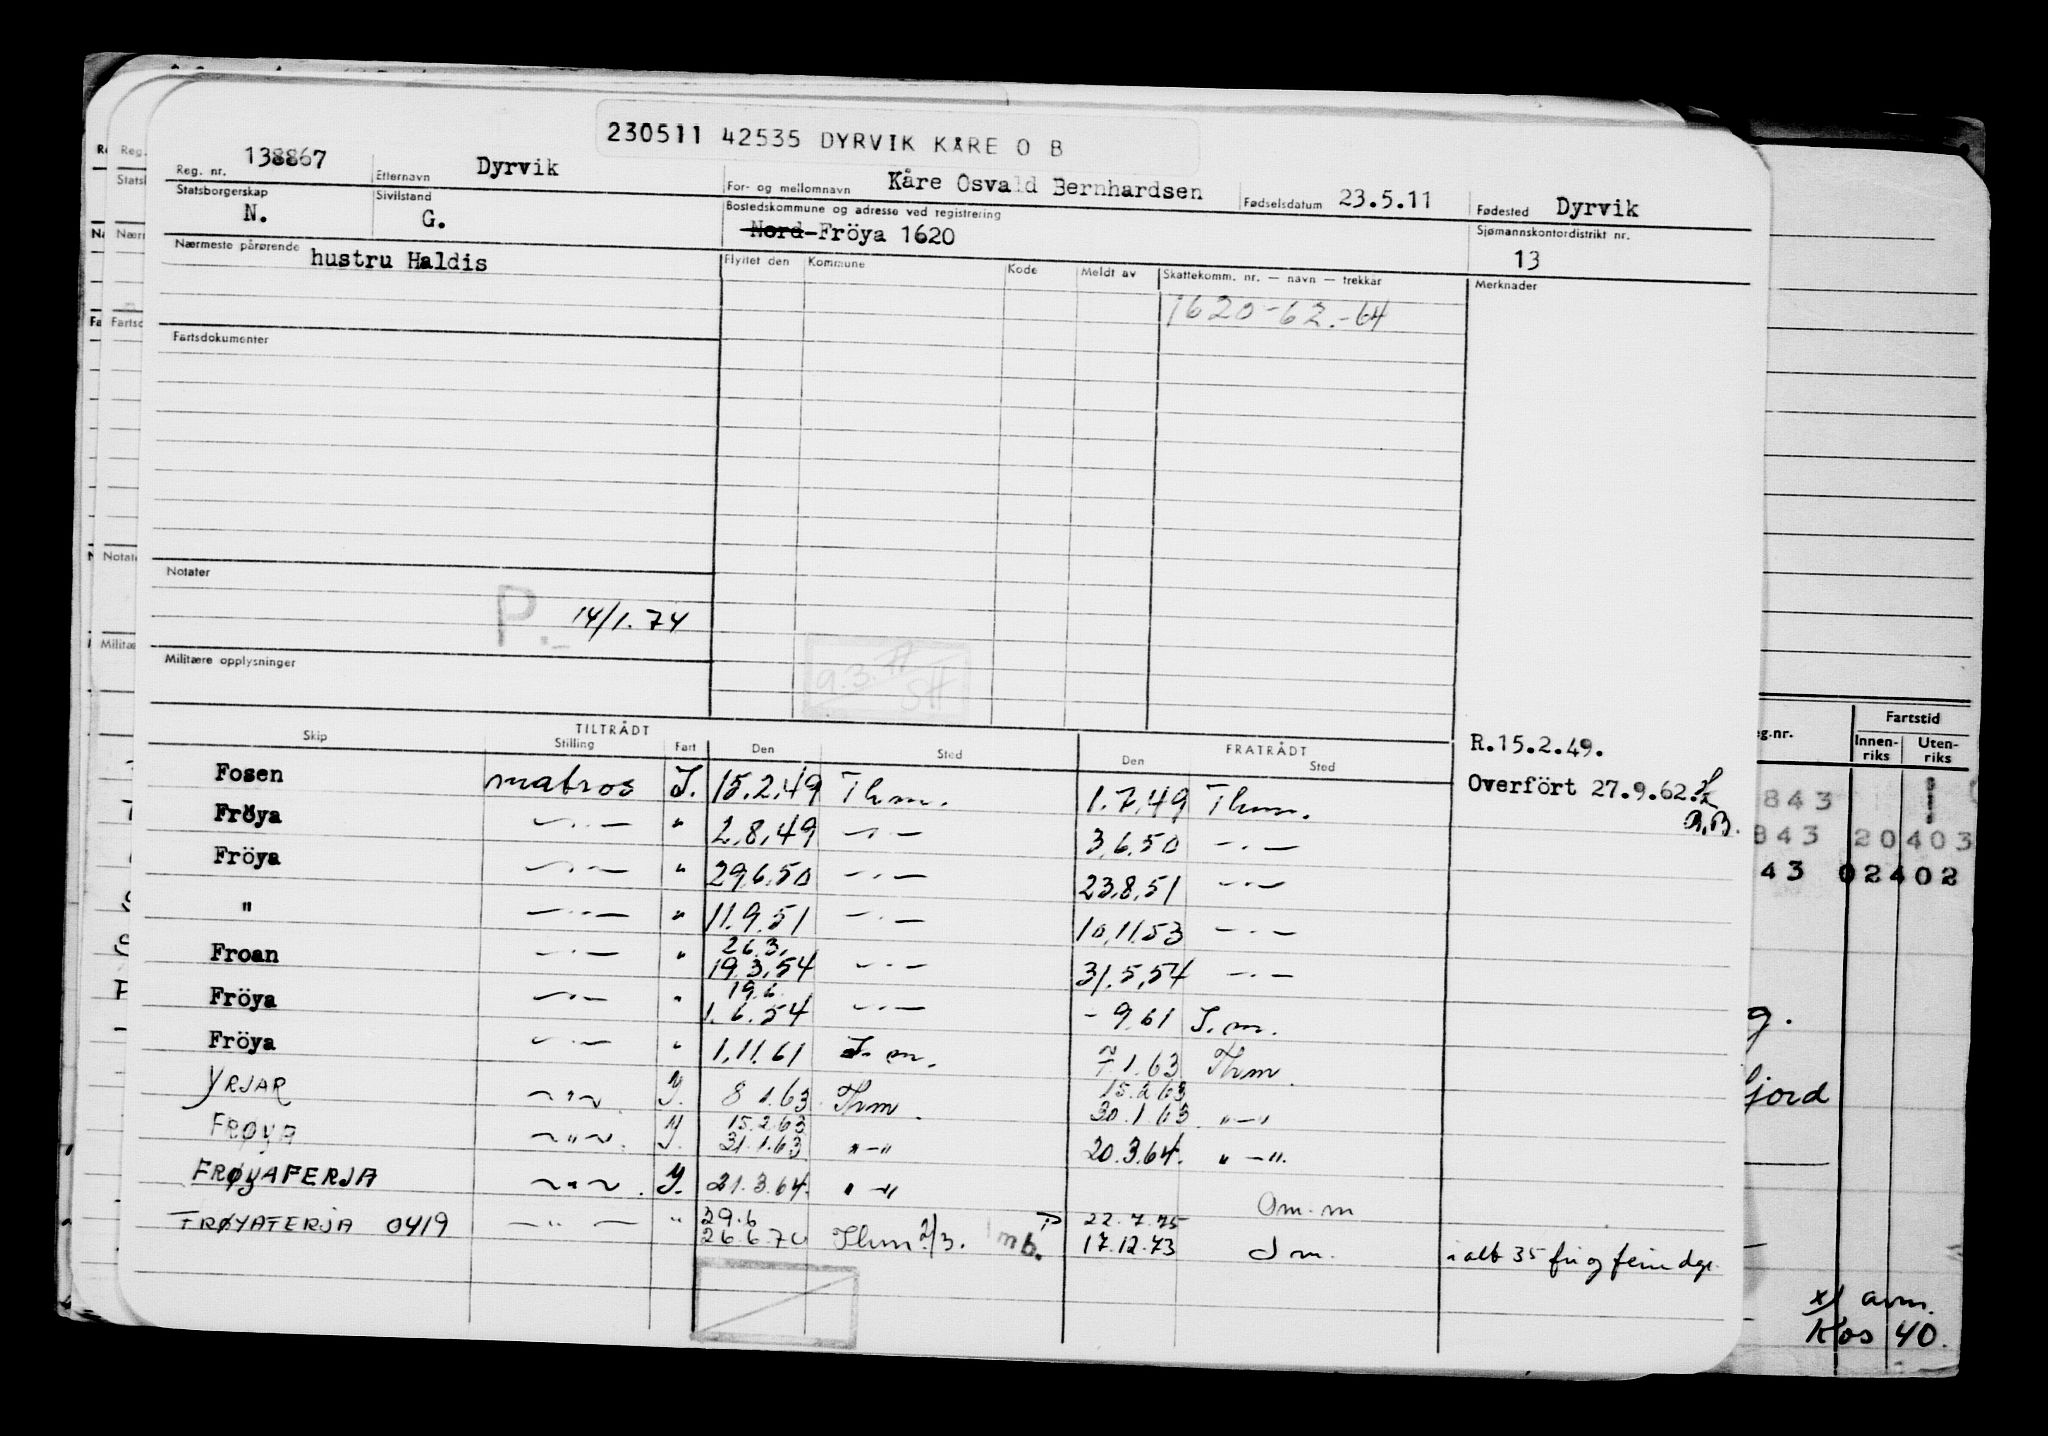 230511 42535 DYRVIK KÅRE O B
Reg. nr. 138867 Etternavn Dyrvik For- og mellomnavn Kåre Osvald Bernhardsen Fødselsdatum 23.5.11 Fødested Dyrvik
Statsborgerskap N. Sivilstand G. Bostedskommune og adresse ved registrering Nord-Fröya 1620 Sjømannskontordistrikt nr. 13
Nærmeste pårørende hustru Haldis Flyttet den Kommune Kode Meldt av Skattekomm. nr. — navn — trekkår Merknader
1620-62.-64
Fartsdokumenter
Notater
P. 14/1.74
Militære opplysninger
TILTRÅDT FRATRÅDT
Skip Stilling Fart Den Sted Den Sted
R.15.2.49.
Overfört 27.9.62.
Fosen matros I. 15.2.49 Thm. 1.7.49 Thm.
Fröya —·— " 2.8.49 —·— 3.6.50 —·—
Fröya —·— " 29.6.50 —·— 23.8.51 —·—
" —·— " 11.9.51 —·— 10.11.53 —·—
26.3.
Froan —·— " 19.3.54 —·— 31.5.54 —·—
19.6.
Fröya —·— " 1.6.54 —·— - 9.61 I.m.
Fröya —·— " 1.11.61 I.m. 7.1.63 Thm.
15.2.63
YRJAR —"— I. 8 1.63 Thm. 30.1.63 "—"
15.2.63
FRØYA —"— I. 31.1.63 "—" 20.3.64. "—".
FRØYAFERJA —"— I. 21.3.64. "—"
29.6 22.7.75 Om.m
FRØYAFERJA 0419 —"— " 26.6.70 Thm 2/3. mb. 17.12.73 I m. i alt 35 fri og ferie dgr.
g.nr. Fartstid
Innen-riks Uten-riks
843
843 20403
43 02402
g.
fjord
x/ avm.
Kos 40.